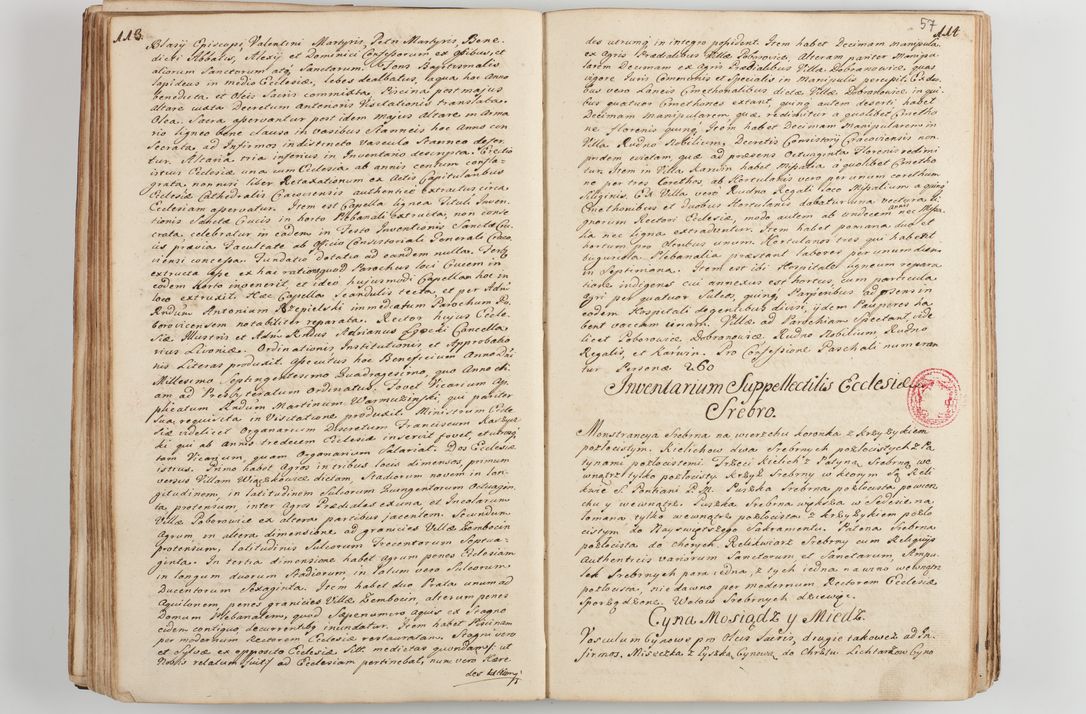 113.
Blasij Episcopi, Valentini Martyris, Petri Martyris, Bene-
dicti Abbatis, Alexij et Dominici Confessorum ex ossibus, et
aliorum Sanctorum atq Sanctarum. Fons Baptismalis
lapideus in medio Ecclesiæ, lebes dealbatus, aqua hoc Anno
benedicta et Oleis Sacris commixta, Piscina post majus
Altare juxta Decretum Anterioris Visitationis translata.
Olea Sacra asservantur post idem majus Altare in Arma
rio ligneo bene clauso in vasibus Stanneis hoc Anno con
secrata, ad Infirmos in distincto vasculo Stanneo defer
tur. Altaria tria inferius in Inventario descripta. Erectio
istius Ecclesiæ una cum Ecclesia ab annis centum confla-
grata, non nisi liber Relaxationum ex Actis Capitularibus
Ecclesiæ Cathedralis Cracoviensis authentice extractus circa
Ecclesiam asservatur. Item est Capella lignea Tituli Inven-
tionis Sanctæ Crucis in horto Plebanali extructa, non conse
crata, celebratur in eadem in Festo Inventionis Sanctæ Cru
cis prævia Facultate ab Officio Consistoriali Generali Craco
viensi concessa. Fundatio dotatio ad eandem nulla. Fertur
extructa esse ex hac ratione quod Parochus loci Crucem in
eodem horto invenerit, et ideo hujusmodi Capellam hoc in
loco extruxit. Hæc Capella Scandulis tecta, et per Adm
Rndum Antonium Rzepielski immediatum Parochum Po
borovicensem notabiliter reparata. Rector hujus Eccle-
siæ Illustris et Adm Rndus Adrianus Łgocki Cancella
rius Livoniæ. Ordinationis Institutionis et Approbatio
nis Literas produxit, assecutus hoc Beneficium Anno Dni
Millesimo Septingentesimo Quadragesimo, quo Anno eti
am ad Presbyteratum Ordinatus. Fovet Vicarium Ap-
plicatum Rndum Martinum Warmuzinski, qui pariter
sua requisita in Visitatione produxit. Ministrum Eccle
siæ videlicet Organarium Discretum Franciscum
ki qui ab Annis tredecem Ecclesiæ inservit fovet, et
tam Vicarium, quam Organarium Salariat. Dos Ecclesiæ
istius. Primo habet Agros in tribus locis dimensos primum
versus Villam Wiązkowice dictam, Stadiorum novem in lon
gitudinem, in latitudinem Sulcorum Ducentorum Octuagin
ta, protensum, inter Agros Prædiales ex una, et Incolarum
Villæ Poborowice ex altera partibus jacentem. Secundum
Agrum in altera dimensione ad granicies Villæ Zembocin
protensum, latitudinis Sulcorum Trecentorum Septua-
ginta. In tertia dimensione habet agrum penes Ecclesiam
in longum duorum Stadiorum in latum vero Sulcorum
Ducentorum Sexaginta. Item habet duo Prata unum ad
Aquilonem, penes granicies Villæ Zembocin, alterum penes
Domum Plebanalem, quod Sæpenumero aquis ex stagno
eidem contiguo decurrentibq inundatur. Item habet Piscinam
per modernum Rectorem Ecclesiæ restauratam. Stagni vero
et Sylvæ ex opposito Ecclesiæ Sitt. medietas quondam ut
Nobis relatum fuit ad Ecclesiam pertinebat, nunc vero Hære
des

57
114
des utrumq in integro possident. Item habet Decimam manipula.
ex Agris Prædialibus Villæ Poborovice, Alteram pariter Manipu-
larem Decimam ex Agris Prædialibus Villæ Dobranovice, quas
vigore Juris Communis et Specialis in Manipulis percipit. Ex du-
bus vero Laneis Cmethonalibus dictæ Villæ Dobranovice, in qui
bus quatuor Cmethones extant, quinq autem deserti habet
Decimam manipularem, quæ redimitur a quolibet Cmetho
ne florenis quinq. Item habet Decimam Manipularem in
Villa Rudno Nobilium, Decretis Consistorij Cracoviensis non
pridem evictam, quæ ad præsens Octuaginta florenis redimi
tur. Item in Villa Karwin habet Missalia a quolibet Cmetho
ne per tres Corethos, ab Hortulanis vero per unum corethum
Siliginis. Ex Villa vero Rudno Regali loco Missalium a quinq
Cmethonibus et duobus Hortulanis dabatur una vectura li-
gnorum Rectori Ecclesiæ, modo autem ab undecem annis nec Missa-
lia nec ligna extraduntur. Item habet pomaria duo et
hortum pro Oleribus unum. Hortulanos tres qui habent
tuguriola Plebanalia præstant labores per unum diem
in Septimana. Item est ibi Hospitale ligneum repara
tione indigens cui annexus est hortus, cum particula
agri per quatuor Sulcos, quinq Pauperibus ad præsens in
eodem Hospitali degentibus divisi, ijdem Pauperes ha
bent vaccam unam. Villæ ad Parochiam Spectant, vide
licet Poborowice, Dobranowice, Rudno Nobilium, Rudno
Regalis, et Karwin. Pro Confessione Paschali numeran
tur Personæ 260
Inventarium Suppellectilis Ecclesiæ
Srebro.
Monstrancya Srebrna na wierzchu koronka z krzyżykiem
pozłocistym. Kielichow dwa Srebrnych pozłocistych z Pa
tynami pozłocistemi. Trzeci Kielich z Patyną Srebrną we
wnątrz tylko pozłocisty. Krzyż Srebrny w ktorym Są Reli
kwie S. Pontiani P. M. Puszka Srebrna pozłocista powierz
chu y wewnątrz. Puszka Srebrna większa w Sedesie na
łomana tylko wewnątrz pozłocista z krzyżykiem pozło
cistym do Nayświętszego Sakramentu. Patena Srebrna
pozłocista do chorych. Relikwiarz Srebrny cum Reliquijs
Authenticis variorum Sanctorum et Sanctarum. Ampu
łek Srebrnych para iedna, z tych iedna na winо wewnątrz
pozłocista, niedawno per modernum Rectorem Ecclesiæ
Sporządzone. Wotow Srebrnych dziewięc.
Cyna Mosiądz y Miedz.
Vasculum Cynowe pro Oleis Sacris, drugie takowez ad In-
firmos. Miseczka z Łyszką Cynową do Chrztu. Lichtarzow Cyno